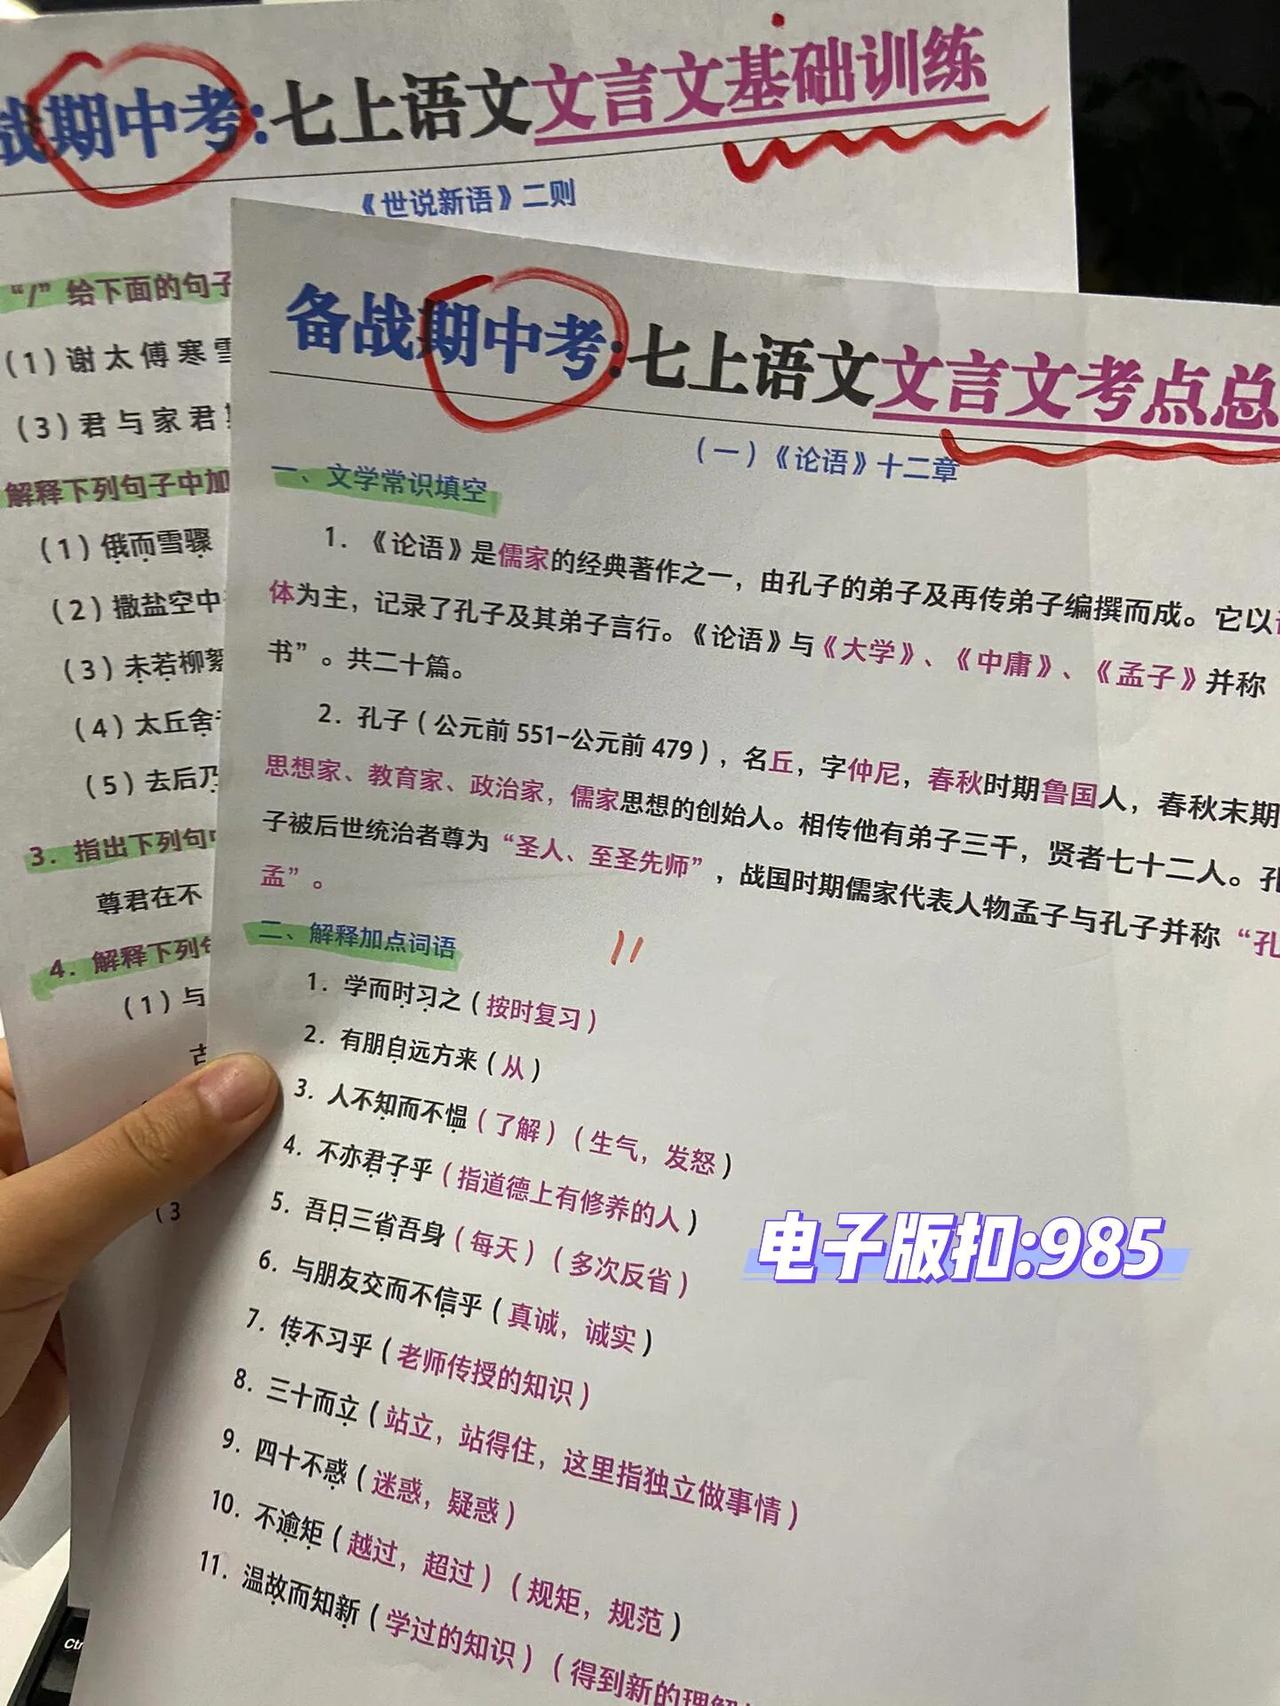 战期中考:七上语文文言文基础训练
《世说新语》二则
“/”给下面的句子
(1)谢太傅寒雪
(3)君与家君期
解释下列句子中加
(1)俄而雪骤
(2)撒盐空中
(3)未若柳絮
(4)太丘舍
(5)去后乃
3. 指出下列句中
尊君在不
4. 解释下列句
(1)与
古
(3
备战期中考:七上语文文言文考点总
(一)《论语》十二章
一、文学常识填空
1. 《论语》是儒家的经典著作之一，由孔子的弟子及再传弟子编撰而成。它以
体为主，记录了孔子及其弟子言行。《论语》与《大学》、《中庸》、《孟子》并称
书”。共二十篇。
2. 孔子(公元前 551-公元前 479)，名丘，字仲尼，春秋时期鲁国人，春秋末期
思想家、教育家、政治家，儒家思想的创始人。相传他有弟子三千，贤者七十二人。孔
子被后世统治者尊为“圣人、至圣先师”，战国时期儒家代表人物孟子与孔子并称“孔
孟”。
二、解释加点词语
1. 学而时习之(按时复习)
2. 有朋自远方来(从)
3. 人不知而不愠(了解)(生气，发怒)
4. 不亦君子乎(指道德上有修养的人)
5. 吾日三省吾身(每天)(多次反省)
6. 与朋友交而不信乎(真诚，诚实)
7. 传不习乎(老师传授的知识)
8. 三十而立(站立，站得住，这里指独立做事情)
9. 四十不惑(迷惑，疑惑)
10. 不逾矩(越过，超过)(规矩，规范)
11. 温故而知新(学过的知识)(得到新的理解
电子版扣:985
Ctr